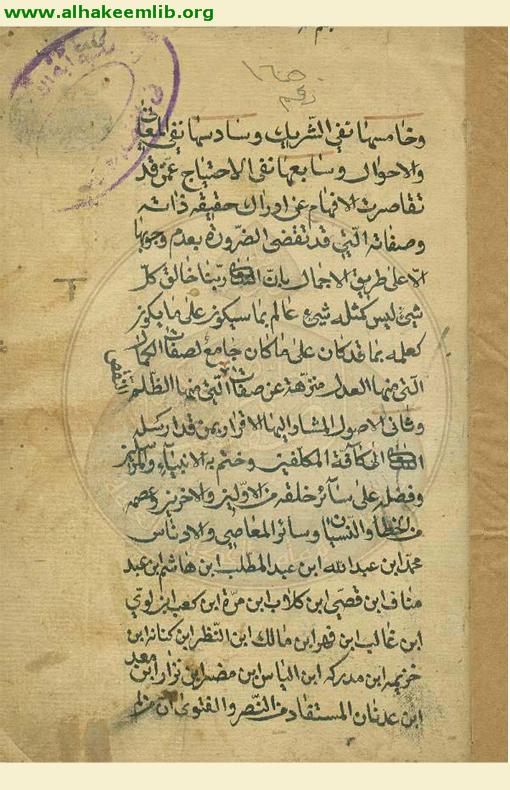 www.alhakeemlib.org
وخامسها نفي الشريك وسادسها نفي المعاني
والاحوال وسابعها نفي الاحتياج عمن قد
تقاصرت الافهام عن ادراك حقيقة ذاته
وصفاته التي قد تقضى الضرورة بعدم وجوبها
الا على طريق الاجمال بان ربنا خالق كل
شيئ ليس كمثله شيئ عالم بما سيكون على ما يكون
كعلمه بما قد كان على ما كان جامع لصفات الكمال
التي منها العدل منزهة عن صفات النقص التي منها الظلم
وثاني الاصول المشار اليها الاقرار بمن قد ارسله
الى كافة المكلفين وختم به الانبياء
وفضل على سائر خلقه من الاولين والاخرين وعصمه
من الخطأ والنسيان وسائر المعاصي والادناس
محمد ابن عبد الله ابن عبد المطلب ابن هاشم ابن عبد
مناف ابن قصي ابن كلاب ابن مرة ابن كعب ابن لوي
ابن غالب ابن فهر ابن مالك ابن النظر ابن كنانه ابن
خزيمه ابن مدركه ابن الياس ابن مضر ابن نزار ابن معد
ابن عدنان المستفاد من النص والفتوى ان من